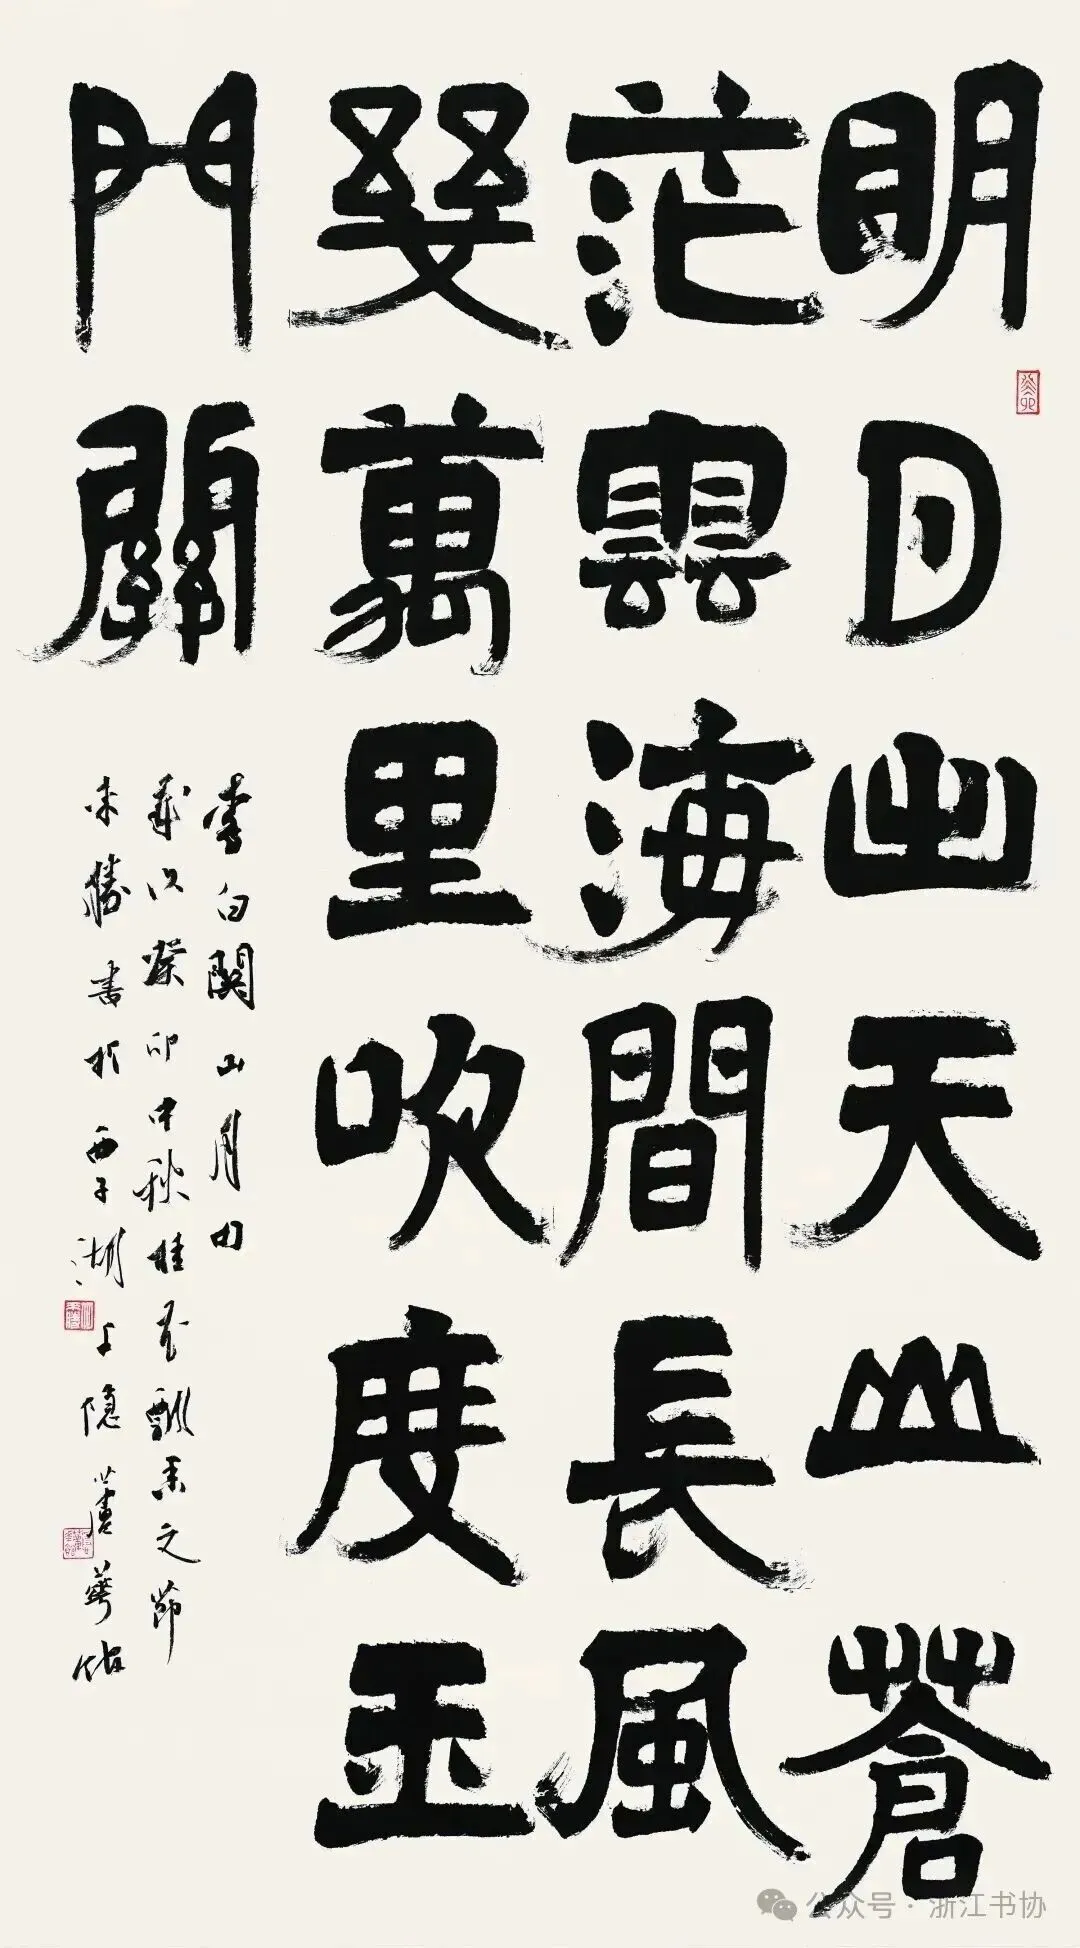 明月出天山蒼
茫雲海間長風
幾萬里吹度玉
門關
李白關山月句
歲次癸卯中秋桂花飄香之節
書於西子湖上隱廬
癸卯
公众号·浙江书协